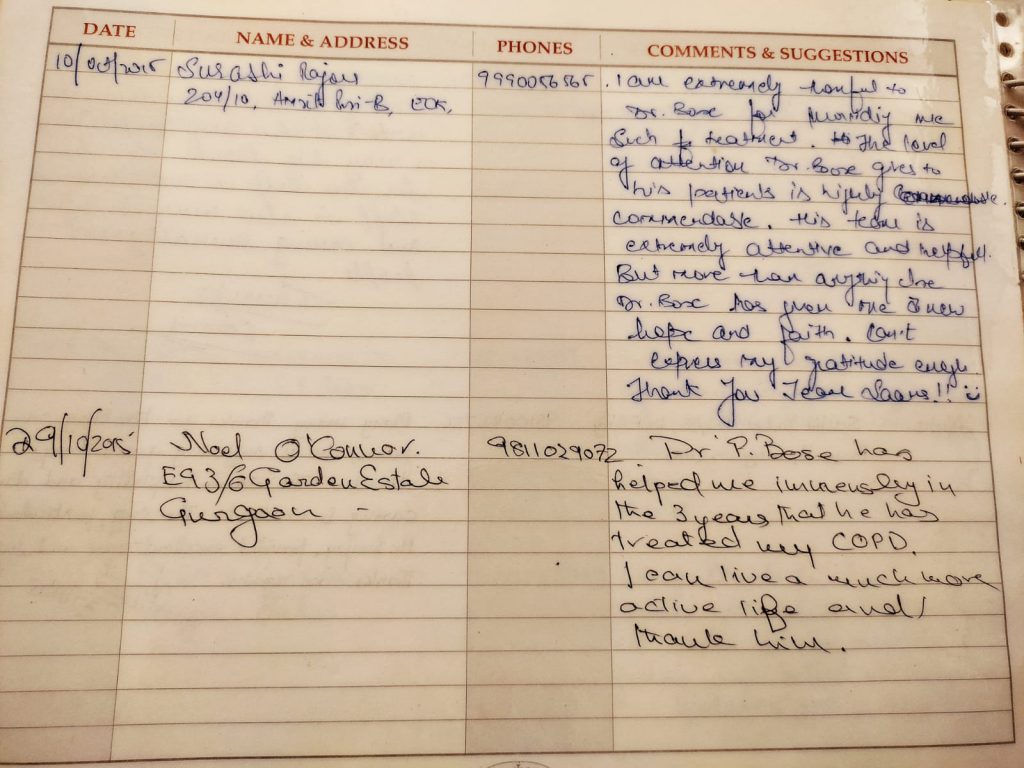 DATE NAME & ADDRESS PHONES COMMENTS & SUGGESTIONS
10/Oct/2015 Surashi Rajan 9990056565 I am extremely thankful to
204/10, Puri-B, EOK, Dr. Bose for me
such treatment. The level
of attention Dr. Bose gives to
his patients is highly
commendable. His team is
extremely attentive and helpful.
But more than anything
Dr. Bose has given me a new
hope and faith. Can't
express my gratitude enough
Thank You Team Saans!!
29/10/2015 Noel O'Connor. 9811029072 Dr P. Bose has
E93/6 Garden Estate helped me immensely in
Gurgaon - the 3 years that he has
treated my COPD.
I can live a much more
active life and I
thank him.